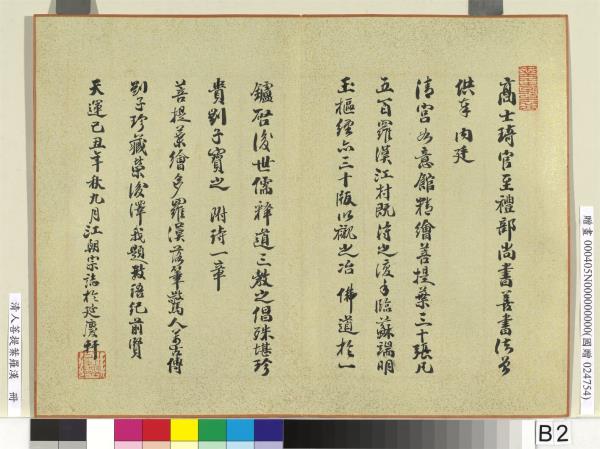 高士琦官至禮部尚書善書法曾
供奉內廷
清宮如意館精繪菩提葉三十張凡
五百羅漢江村既得之後手臨蘇端明
玉樞經亦三十版以觀之冶佛道於一
鑪啓後世儒釋道三教之倡殊堪珍
貴劉子寶之 附詩一章
菩提葉繪多羅漢落筆驚人萬古傳
劉子珍藏榮後澤我題數語紀前賢
天運己丑年秋九月江朝宗誌於延慶軒
清人菩提葉羅漢 冊
贈畫 000405N000000000(國贈 024754)
B2